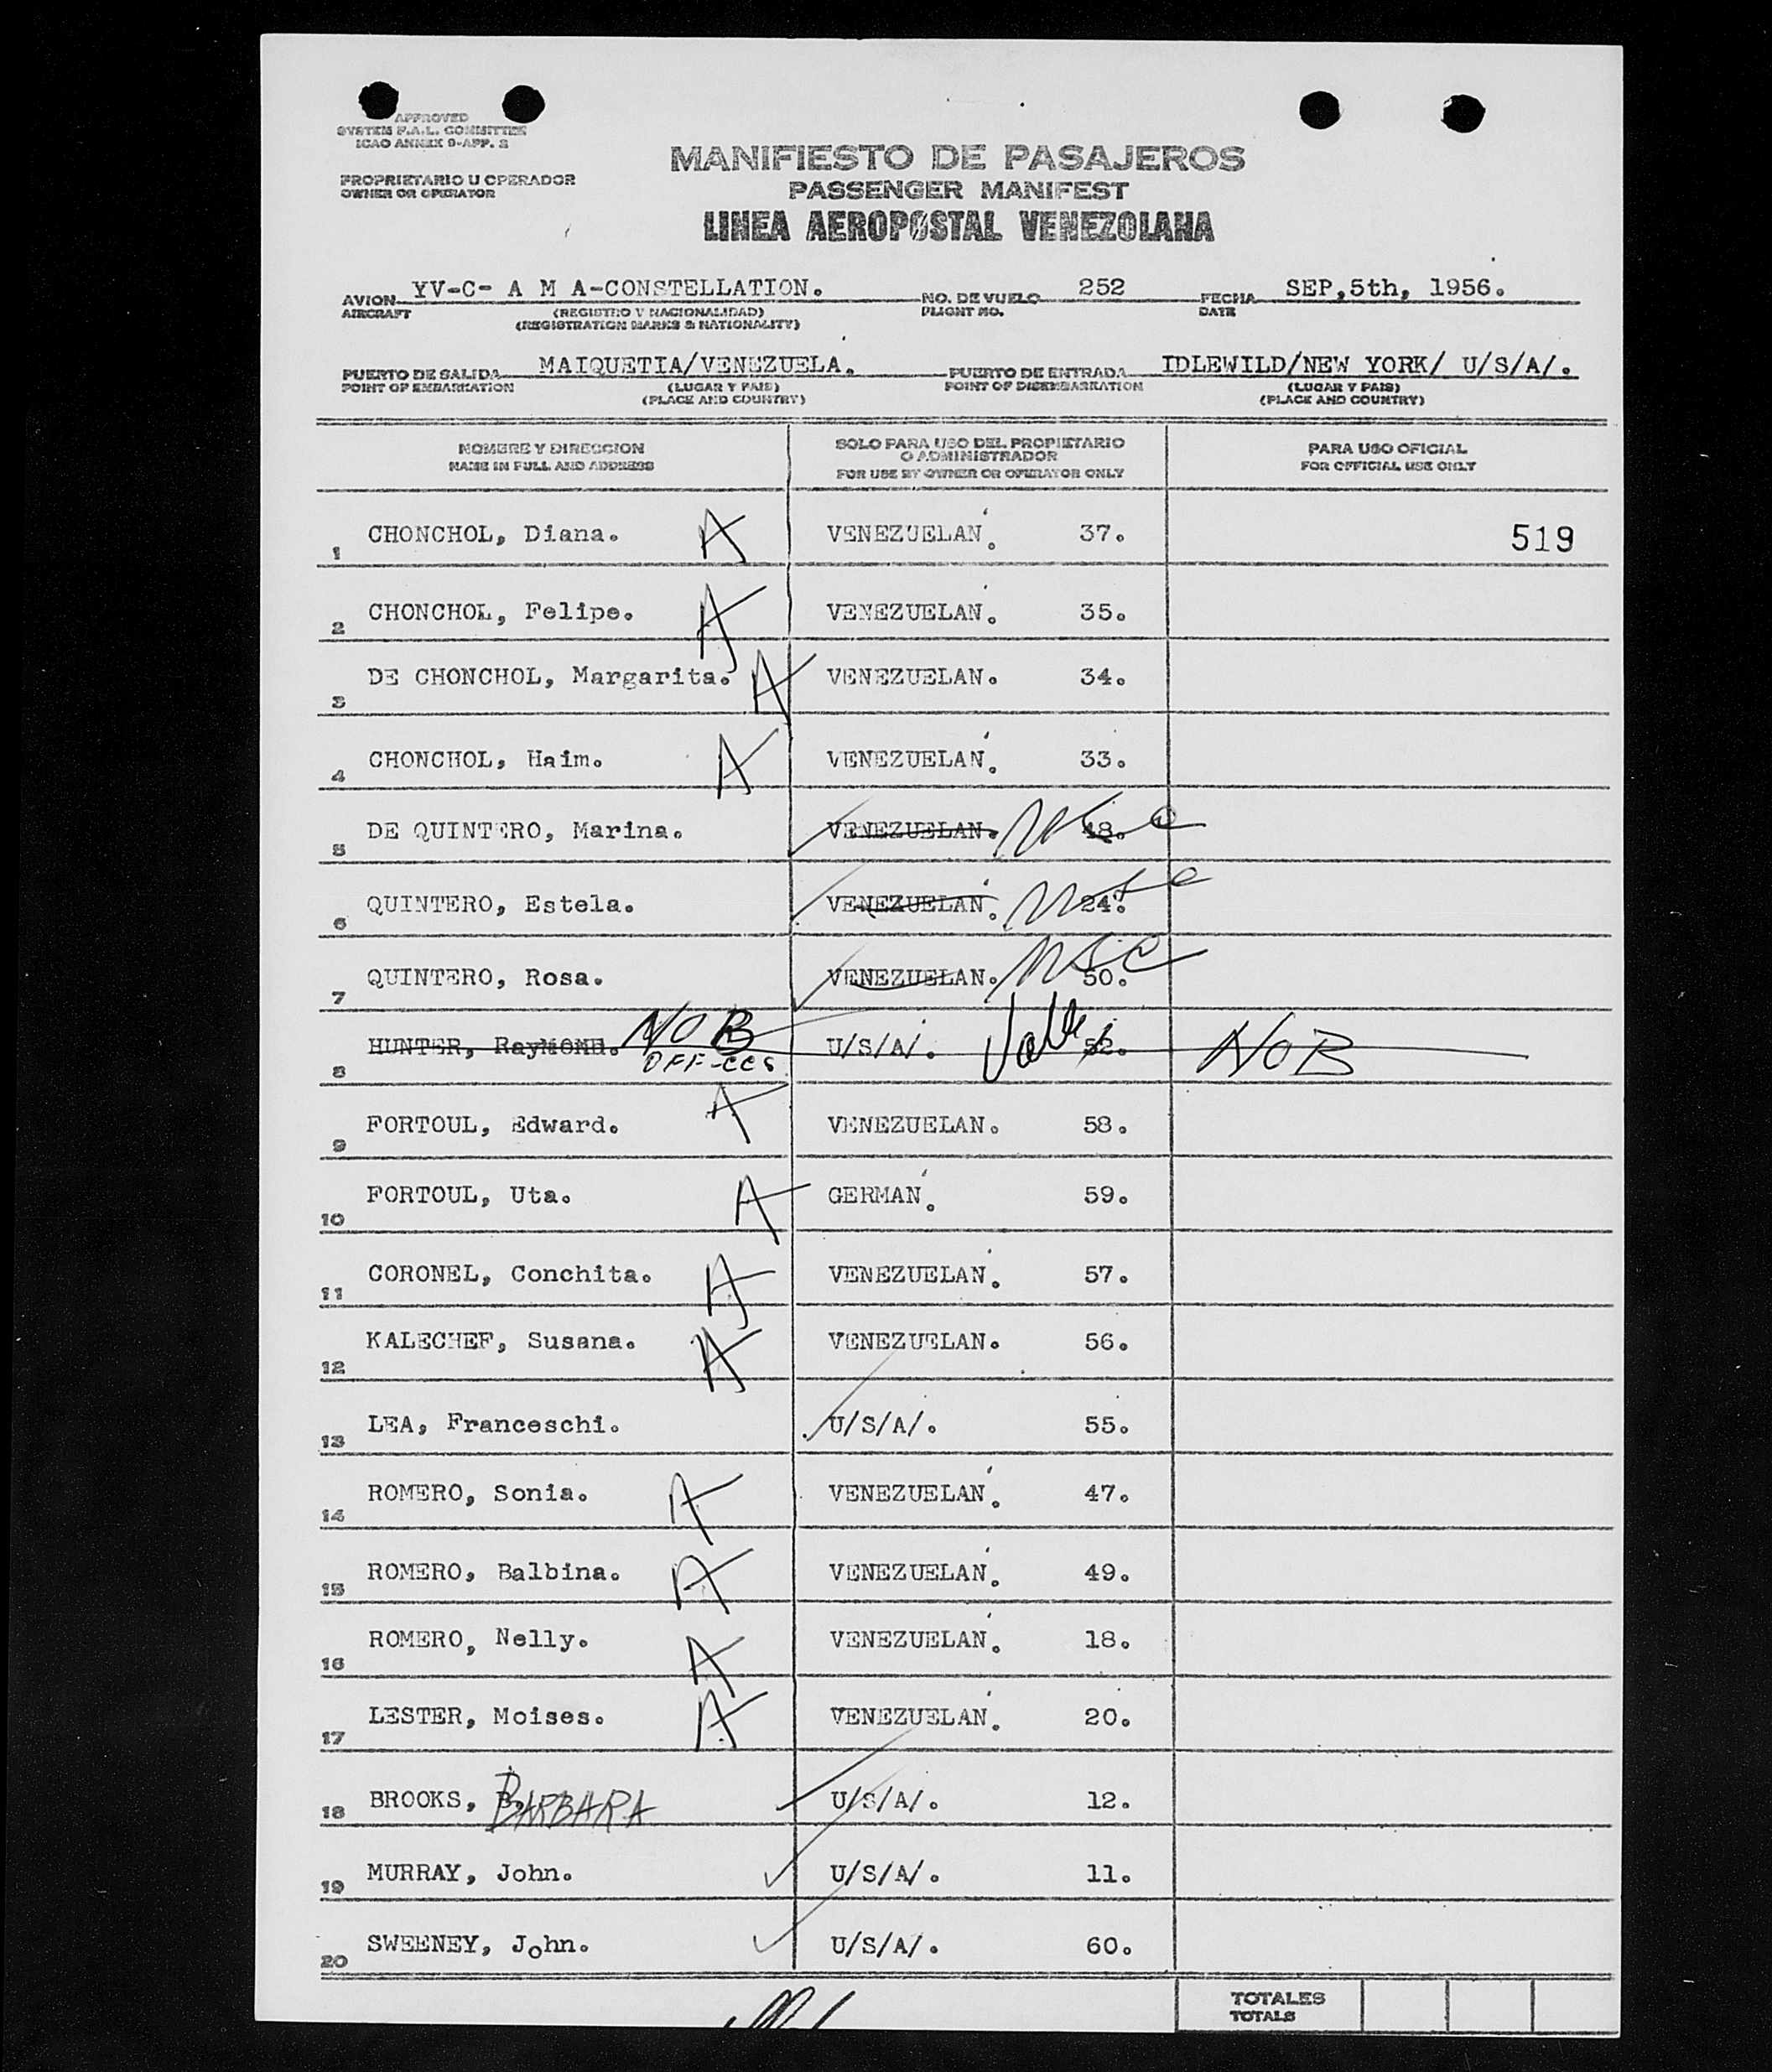 APPROVED
SYSTEM F.A.L. COMMITTEE
ICAO ANNEX 9-APP. 2
PROPRIETARIO U OPERADOR
OWNER OR OPERATOR
MANIFIESTO DE PASAJEROS
PASSENGER MANIFEST
LINEA AEROPOSTAL VENEZOLANA
AVION YV-C- A M A-CONSTELLATION. NO. DE VUELO 252 FECHA SEP,5th, 1956.
AIRCRAFT (REGISTRO Y NACIONALIDAD) FLIGHT NO. DATE
(REGISTRATION MARKS & NATIONALITY)
PUERTO DE SALIDA MAIQUETIA/VENEZUELA. PUERTO DE ENTRADA IDLEWILD/NEW YORK/ U/S/A/.
POINT OF EMBARKATION (LUGAR Y PAIS) POINT OF DISEMBARKATION (LUGAR Y PAIS)
(PLACE AND COUNTRY) (PLACE AND COUNTRY)
NOMBRE Y DIRECCION SOLO PARA USO DEL PROPIETARIO PARA USO OFICIAL
O ADMINISTRADOR
NAME IN FULL AND ADDRESS FOR USE BY OWNER OR OPERATOR ONLY FOR OFFICIAL USE ONLY
1 CHONCHOL, Diana. A VENEZUELAN. 37. 519
2 CHONCHOL, Felipe. A VENEZUELAN. 35.
3 DE CHONCHOL, Margarita. A VENEZUELAN. 34.
4 CHONCHOL, Haim. A VENEZUELAN. 33.
5 DE QUINTERO, Marina. VENEZUELAN. 48. USC
6 QUINTERO, Estela. VENEZUELAN. 24. USC
7 QUINTERO, Rosa. VENEZUELAN. 50. USC
8 HUNTER, RayMOND. NOB OFF-CCS U/S/A/. 52. NOB
9 FORTOUL, Edward. A VENEZUELAN. 58.
10 FORTOUL, Uta. A GERMAN. 59.
11 CORONEL, Conchita. A VENEZUELAN. 57.
12 KALECHEF, Susana. A VENEZUELAN. 56.
13 LEA, Franceschi. U/S/A/. 55.
14 ROMERO, Sonia. A VENEZUELAN. 47.
15 ROMERO, Balbina. A VENEZUELAN. 49.
16 ROMERO, Nelly. A VENEZUELAN. 18.
17 LESTER, Moises. A VENEZUELAN. 20.
18 BROOKS, BARBARA U/S/A/. 12.
19 MURRAY, John. U/S/A/. 11.
20 SWEENEY, John. U/S/A/. 60.
TOTALES
TOTALS